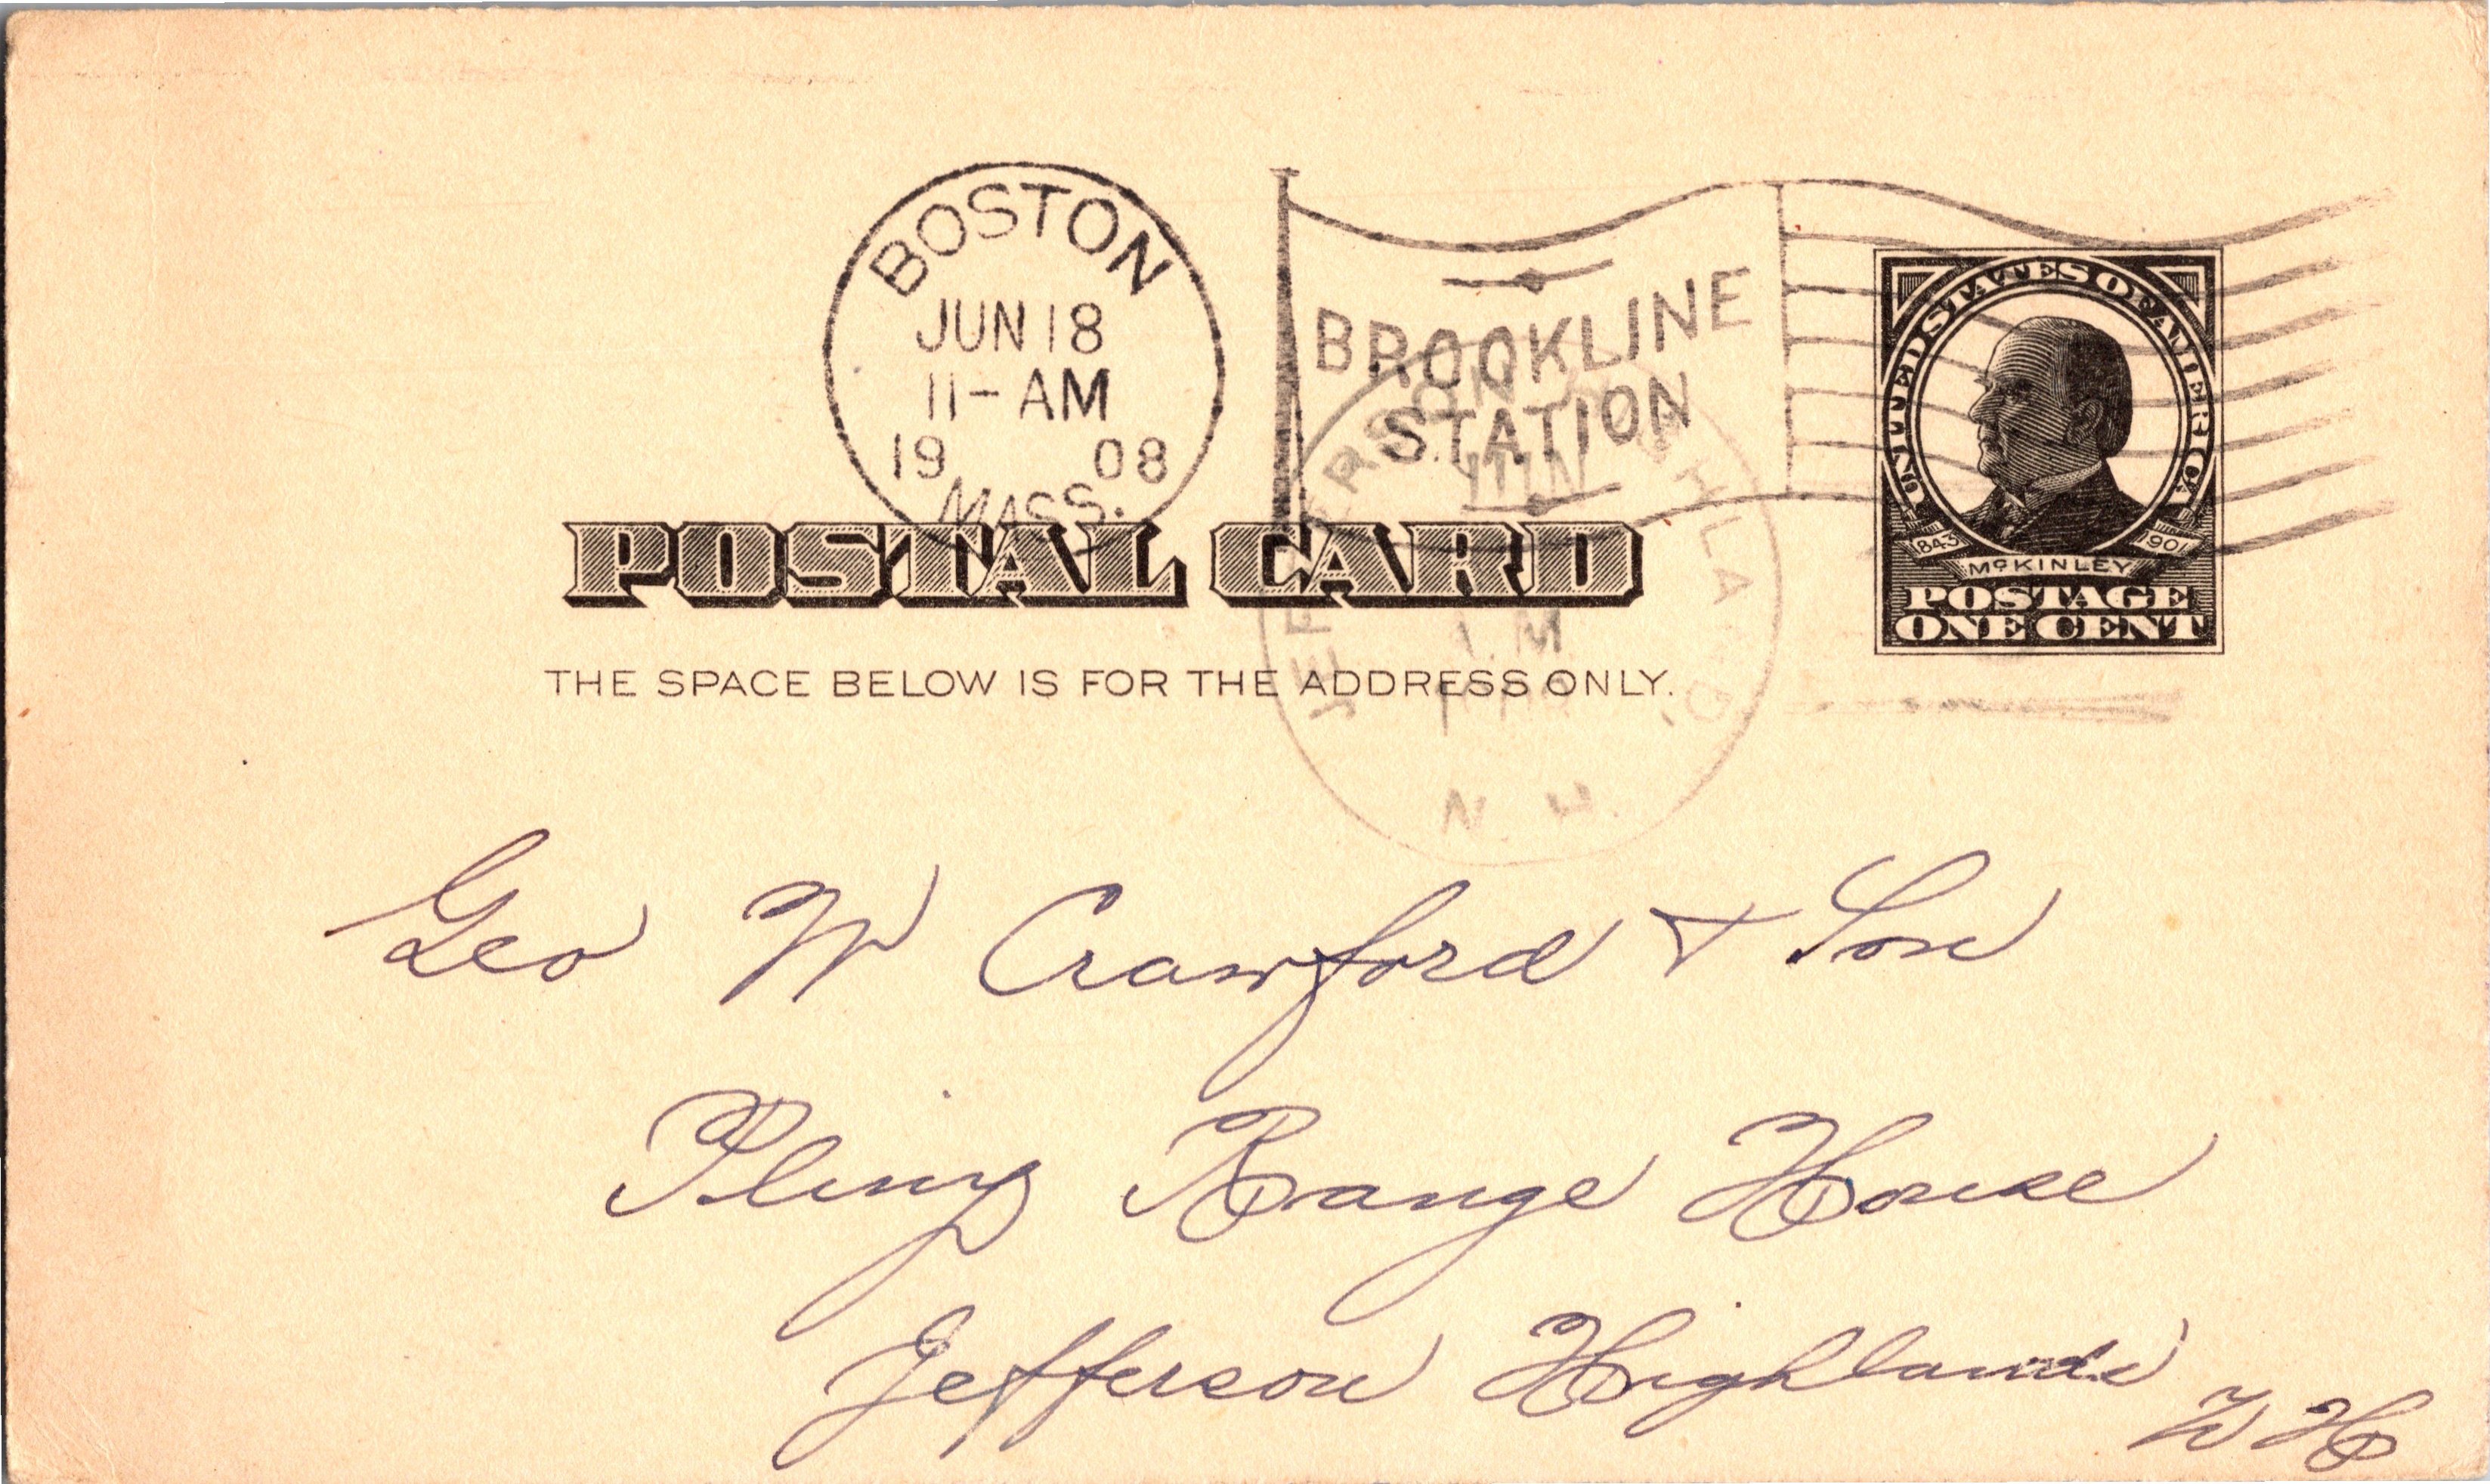 BOSTON
JUN 18
11-AM
19 08
MASS.
BROOKLINE
STATION
UNITED STATES OF AMERICA
1843 1901
McKINLEY
POSTAGE
ONE CENT
POSTAL CARD
THE SPACE BELOW IS FOR THE ADDRESS ONLY.
JEFFERSON HIGHLAND,
JUN
N. H.
Geo W Crawford & Son
Pliny Range House
Jefferson Highlands
N H